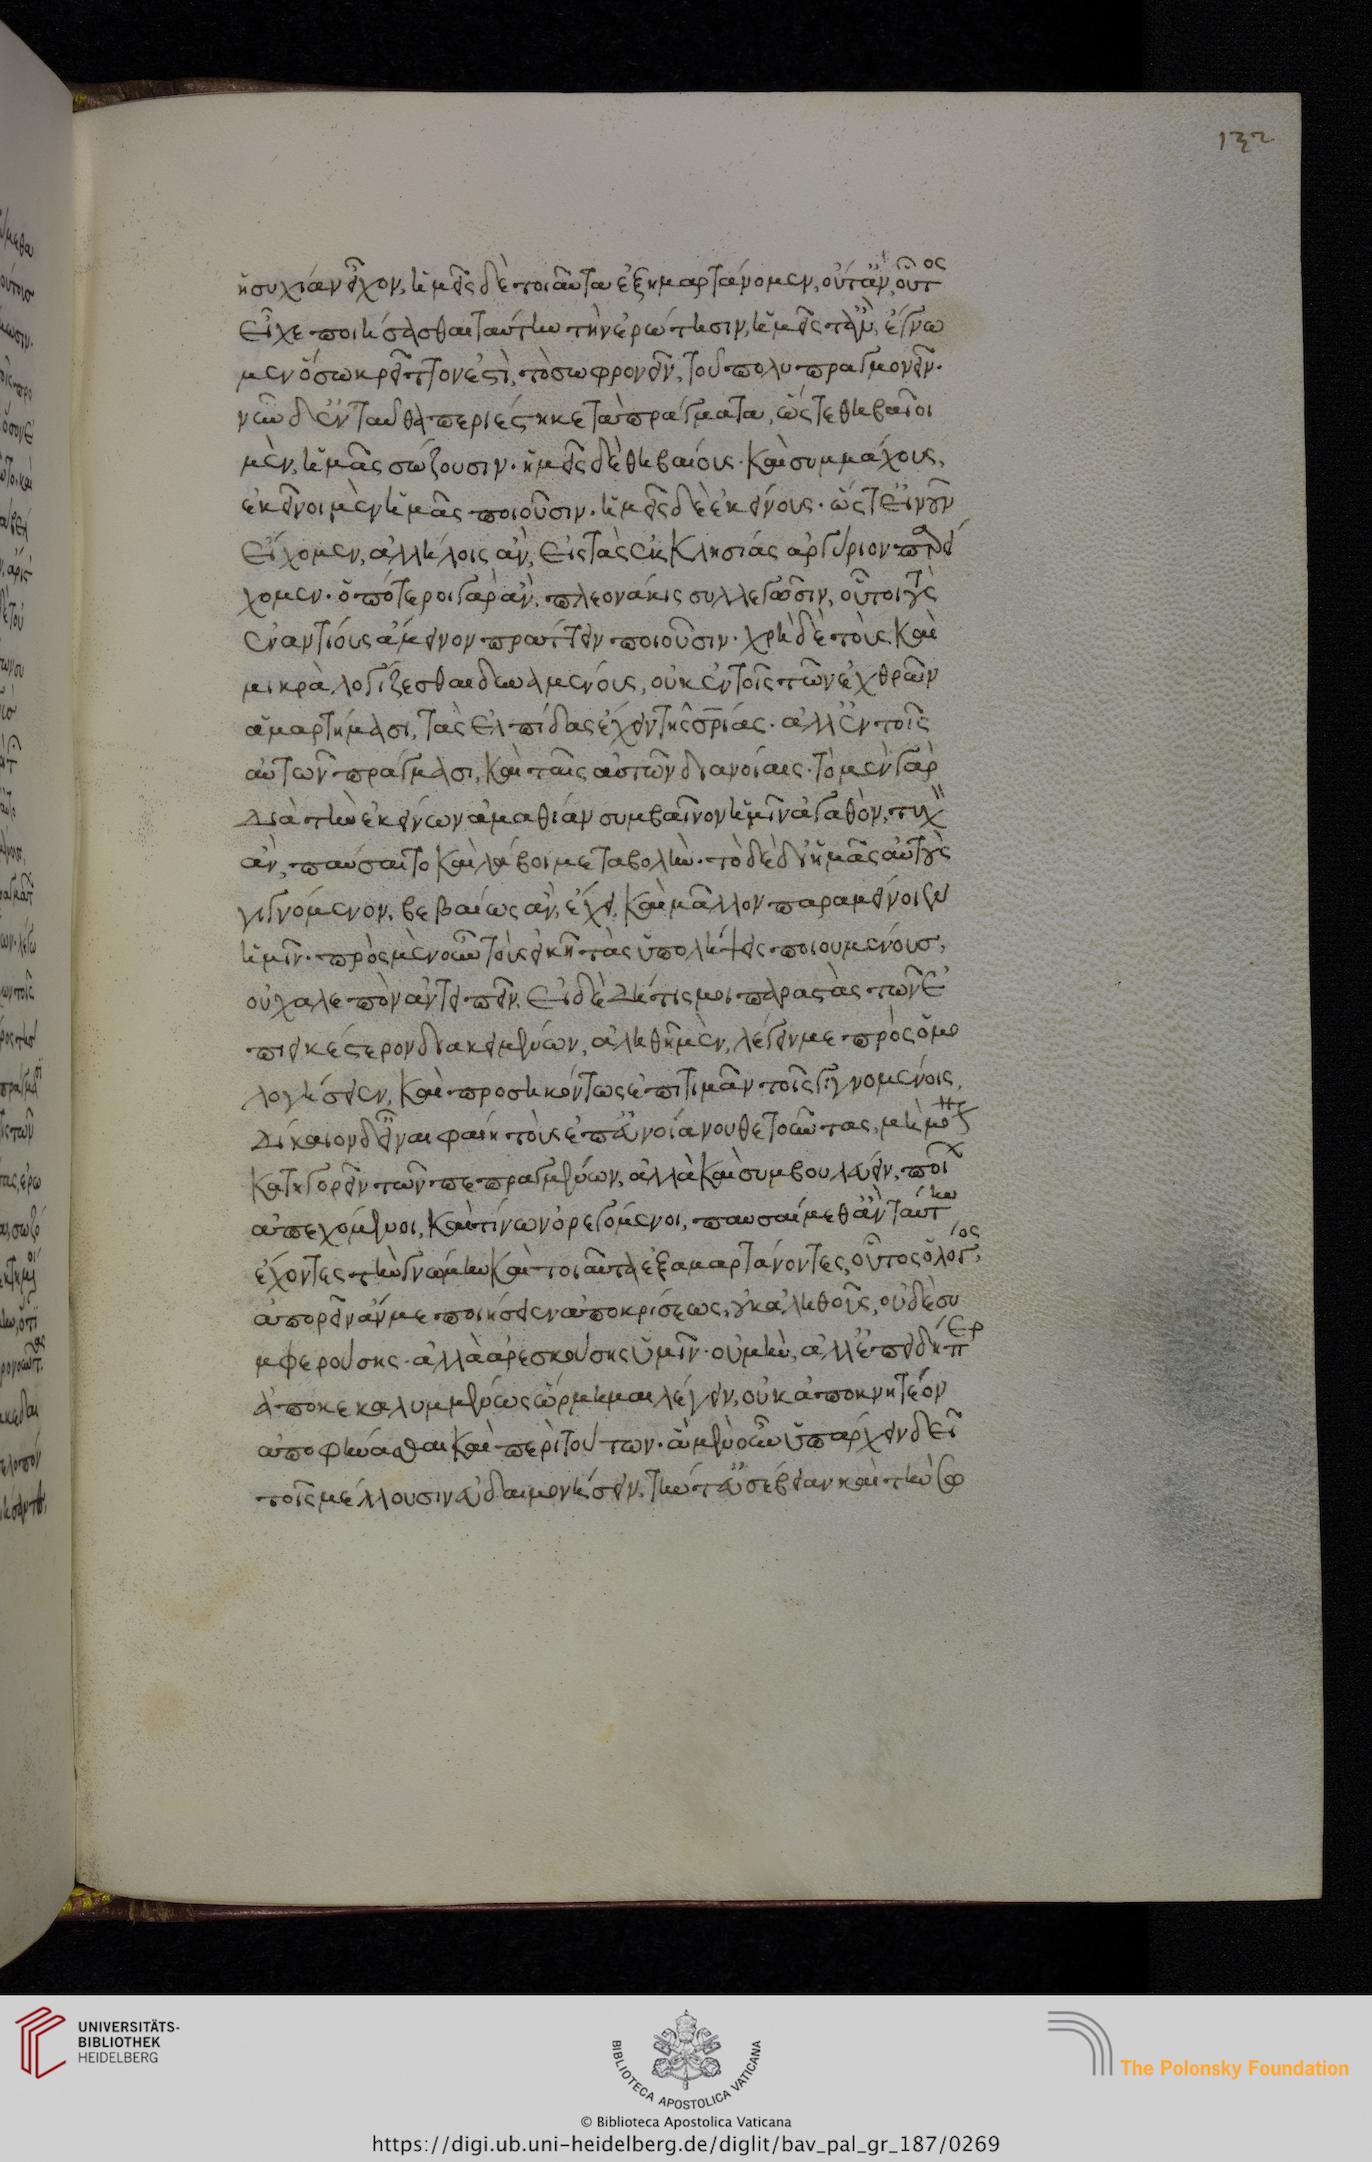 132
ἡσυχίαν εἶχον, ἡμεῖς δὲ τοιαῦτα ἐξημαρτάνομεν, οὔτ' ἂν, οὗτος
εἶχε ποιήσασθαι ταύτην τὴν ἐρώτησιν, ἡμεῖς τ' ἂν, ἔγνω
μεν ὅσω κρεῖττον ἐστὶ, τὸ σωφρονεῖν, τοῦ πολυπραγμονεῖν.
νῦν δ' ἐνταῦθα περιέστηκε τὰ πράγματα, ὥστε θηβαῖοι
μὲν, ἡμᾶς σώζουσιν. ἡμεῖς δὲ θηβαίους. καὶ συμμάχους,
ἐκεῖνοι μὲν ἡμᾶς ποιοῦσιν. ἡμεῖς δὲ ἐκείνους. ὥστ' εἰ νοῦν
εἴχομεν, ἀλλήλοις ἂν, εἰς τὰς ἐκκλησίας ἀργύριον παρεί
χομεν. ὁπότεροι γὰρ ἂν, πλεονάκις συλλεγῶσιν, οὗτοι τοὺς
ἐναντίους ἄμεινον πράττειν ποιοῦσιν. χρὴ δὲ τοὺς καὶ
μικρὰ λογίζεσθαι δυναμένους, οὐκ ἐν τοῖς τῶν ἐχθρῶν
ἁμαρτήμασι, τὰς ἐλπίδας ἔχειν τῆς σρίας. ἀλλ' ἐν τοῖς
αὑτῶν πράγμασι, καὶ ταῖς αὑτῶν διανοίαις. τὸ μὲν γὰρ
διὰ τὴν ἐκείνων ἀμαθίαν συμβαῖνον ἡμῖν ἀγαθὸν, τυχ
ἂν, παύσαιτο καὶ λάβοι μεταβολήν. τὸ δὲ δι' ἡμᾶς αὐτοὺς
γιγνόμενον, βεβαίως ἂν, ἔχοι, καὶ μᾶλλον παραμείνοιεν
ἡμῖν. πρὸς μὲν οὖν τοὺς εἰκῆ τὰς ὑπολήψεις ποιουμένους,
οὐ χαλεπὸν ἀντειπεῖν. εἰ δὲ δή τις μοι παραστὰς τῶν ἐ
πιεικέστερον διακειμένων, ἀληθῆ μὲν, λέγειν με προσομο
λογήσειεν, καὶ προσηκόντως ἐπιτιμᾶν τοῖς γιγνομένοις,
δίκαιον δ' εἶναι φαίη τοὺς ἐπ' εὐνοία νουθετοῦντας, μὴ μόν
κατηγορεῖν τῶν πεπραγμένων, ἀλλὰ καὶ συμβουλεύειν, ποί
ἀπεχόμενοι, καὶ τίνων ὀρεγόμενοι, παυσαίμεθ' ἂν ταύτην
ἔχοντες τὴν γνώμην καὶ τοιαῦτα ἐξαμαρτάνοντες, οὗτος ὁ λόγος,
ἀπορεῖν ἄν με ποιήσειεν ἀποκρίσεως, οὐκ ἀληθοῦς, οὐδὲ συ
μφερούσης. ἀλλὰ ἀρεσκούσης ὑμῖν. οὐ μὴν, ἀλλ' ἐπειδήπερ
ἀποκεκαλυμμένως ὥρμημαι λέγειν, οὐκ ἀποκνητέον
ἀποφήνασθαι καὶ περὶ τούτων. ἃ μὲν οὖν ὑπάρχειν δεῖ
τοῖς μέλλουσιν εὐδαιμονήσειν, τήν τ' εὐσέβειαν καὶ τὴν σω
UNIVERSITÄTS-
BIBLIOTHEK
HEIDELBERG
BIBLIOTECA APOSTOLICA VATICANA
The Polonsky Foundation
© Biblioteca Apostolica Vaticana
https://digi.ub.uni-heidelberg.de/diglit/bav_pal_gr_187/0269